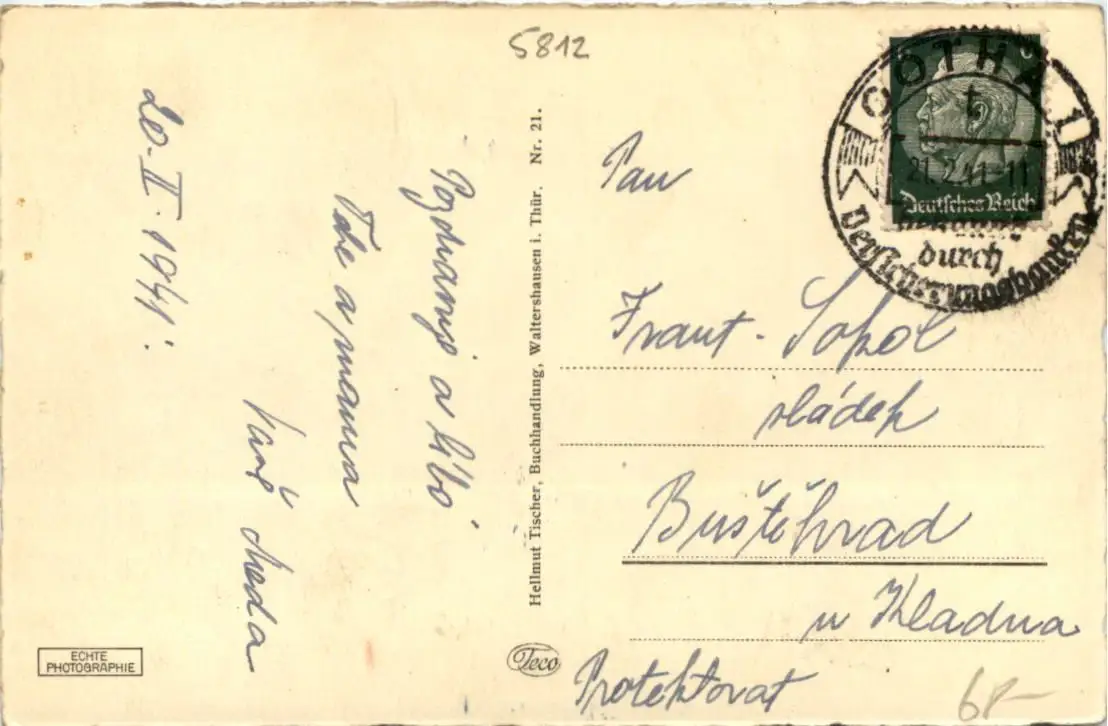 5812
20-II-1941.
Pozdravuji a líbá
Tebe a mama
Váš
Hellmut Tischer, Buchhandlung, Waltershausen i. Thür. Nr. 21.
ECHTE
PHOTOGRAPHIE
Teco
GOTHA 1
t
21.2.41-11
Deutsches Reich
durch
Versicherungsbanken
Pan
Frant. Sokol
sládek
Buštěhrad
u Kladna
Protektorat
68-